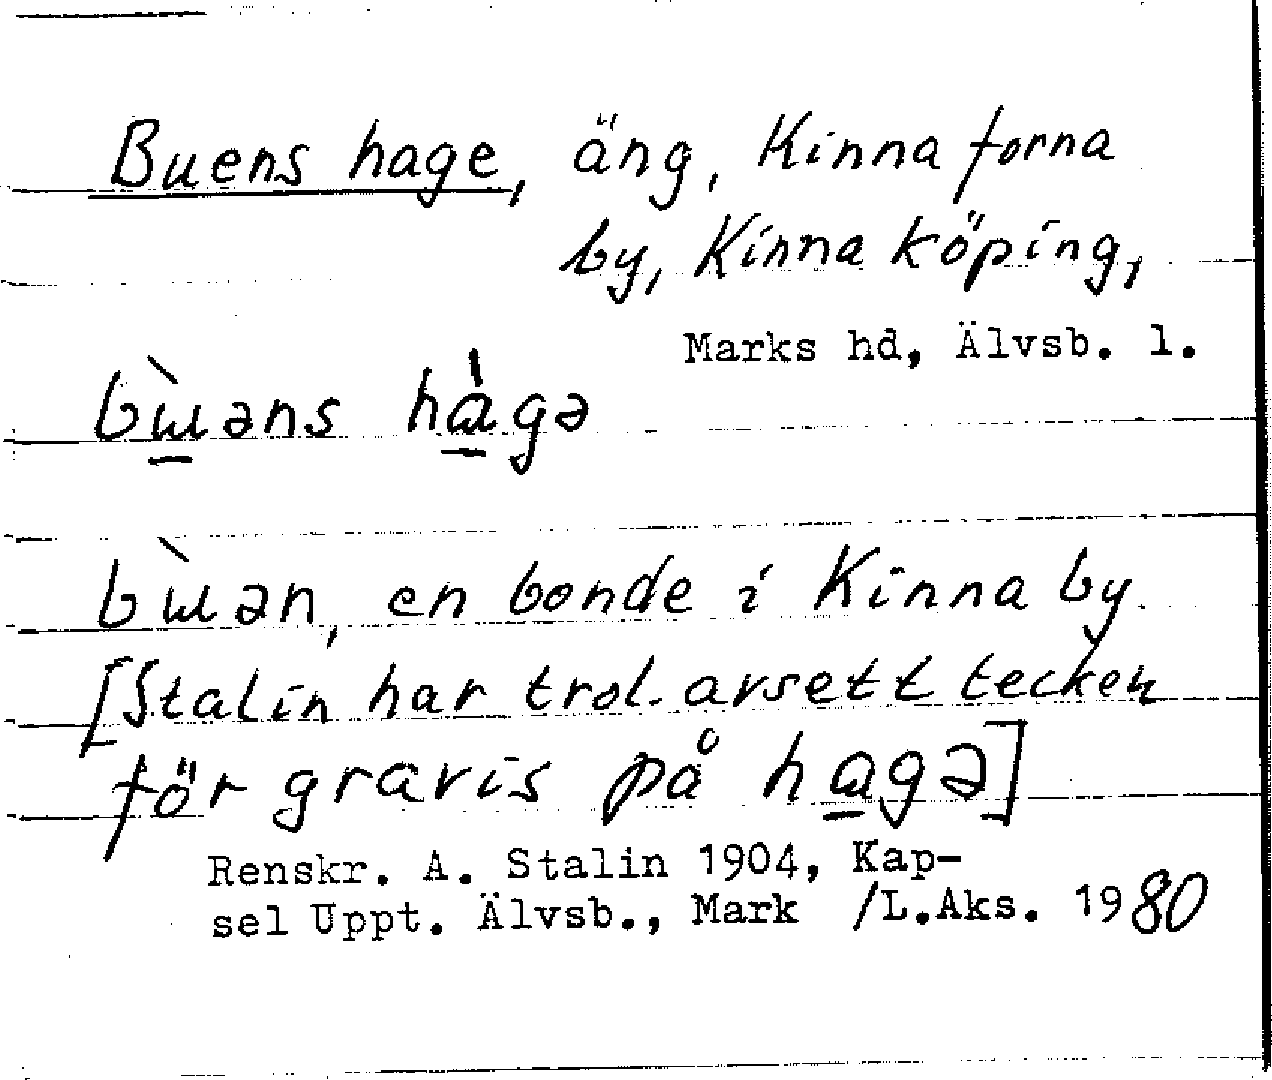 Buens hage, äng, Kinna forna
by, Kinna köping,
Marks hd, Älvsb. l.
bɯ̀əns hàgə
bɯ̀ən, en bonde i Kinna by.
[Stalin har trol. avsett tecken
för gravis på hagə]
Renskr. A. Stalin 1904, Kap-
sel Uppt. Älvsb., Mark /L.Aks. 1980